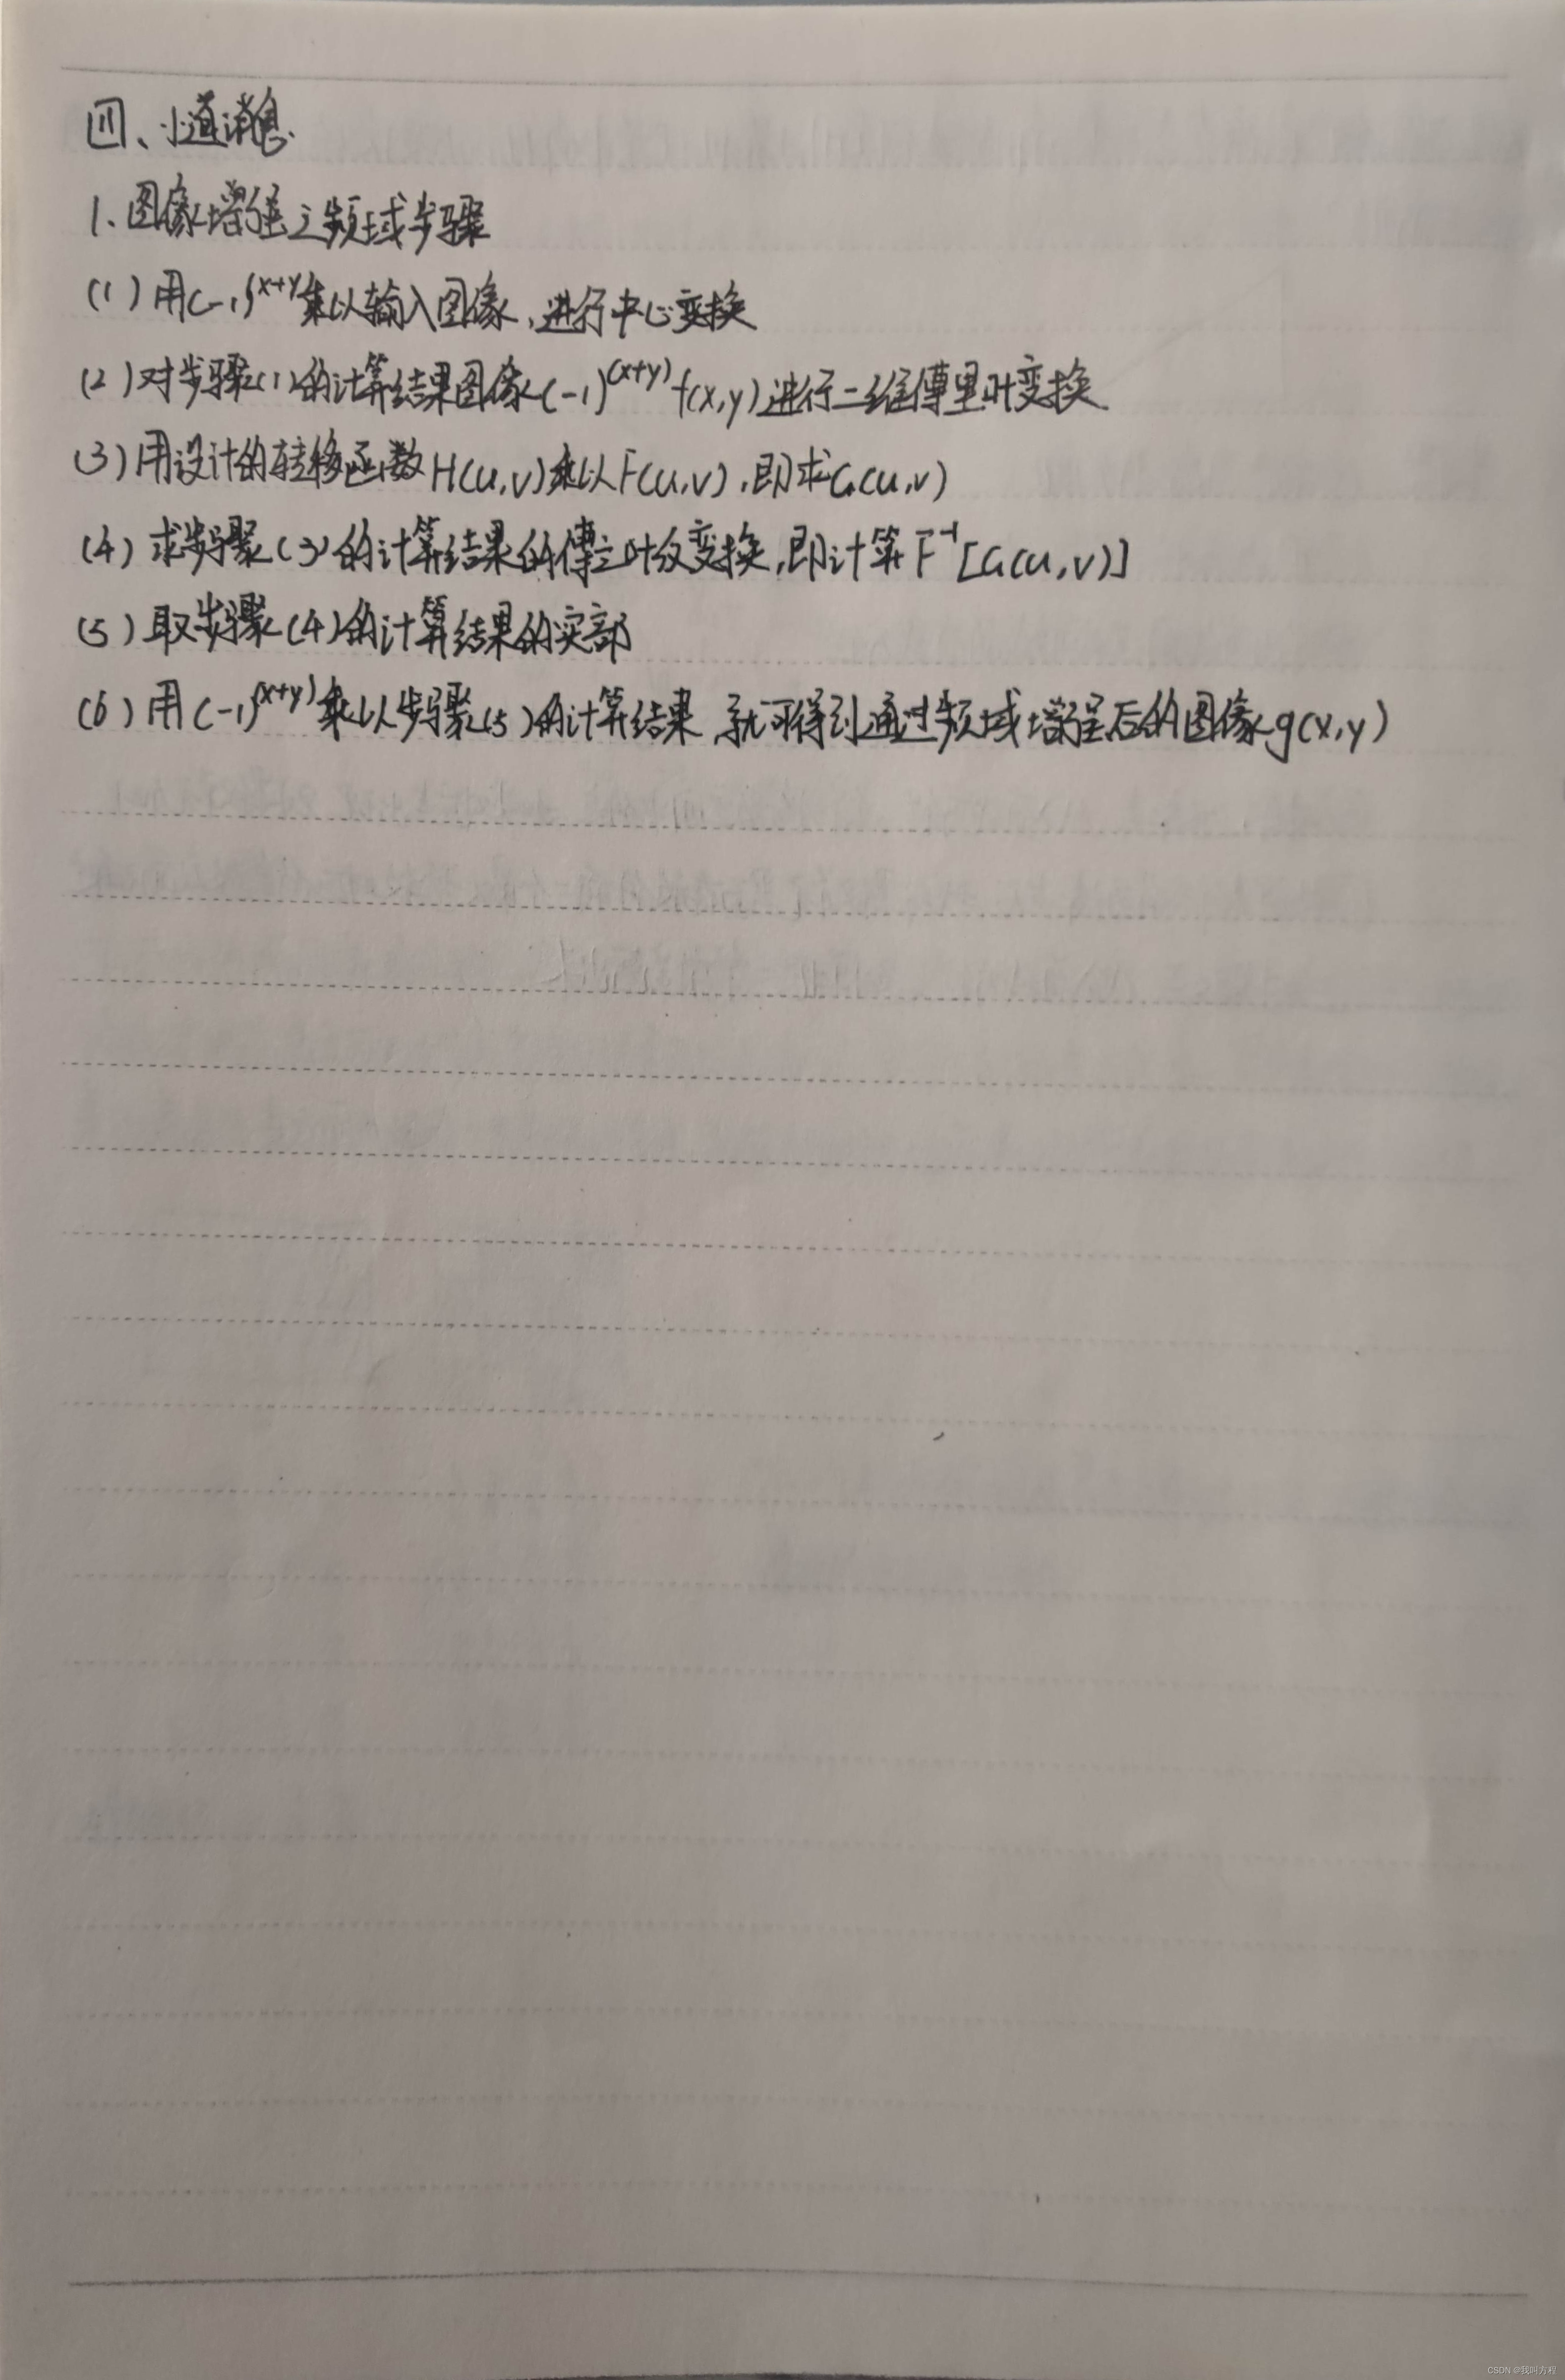 四、小道消息.
1、图像增强之频域步骤
(1)用(-1)^(x+y)乘以输入图像,进行中心变换
(2)对步骤(1)的计算结果图像(-1)^(x+y) f(x,y)进行二维傅里叶变换.
(3)用设计的转移函数H(u,v)乘以F(u,v),即求G(u,v)
(4)求步骤(3)的计算结果的傅立叶反变换,即计算F^-1[G(u,v)]
(5)取步骤(4)的计算结果的实部
(6)用(-1)^(x+y)乘以步骤(5)的计算结果,就可得到通过频域增强后的图像g(x,y)
CSDN @我叫方程